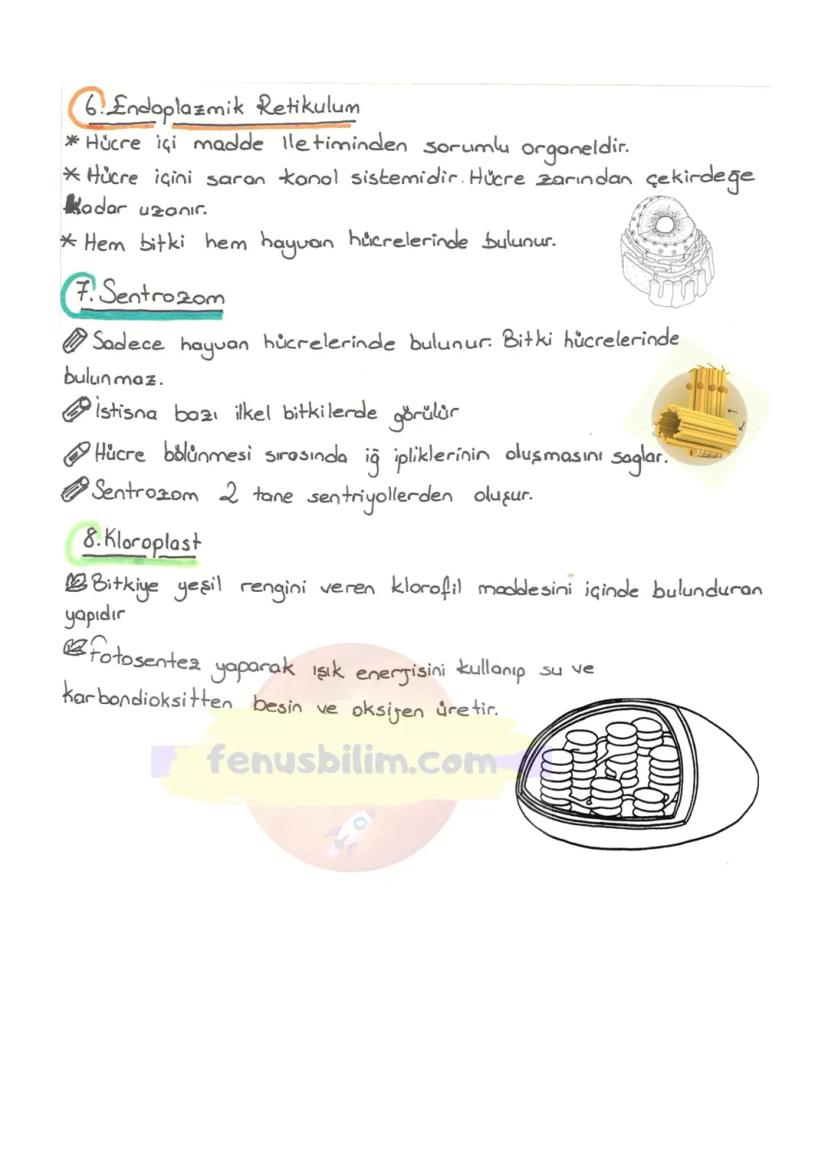 6. Endoplazmik Retikulum
* Hücre içi madde iletiminden sorumlu organeldir.
* Hücre içini saran kanal sistemidir. Hücre zarından çekirdeğe
kadar uzanır.
* Hem bitki hem hayvan hücrelerinde bulunur.
7. Sentrozom
Sadece hayvan hücrelerinde bulunur. Bitki hücrelerinde
bulunmaz.
İstisna bazı ilkel bitkilerde görülür
Hücre bölünmesi sırasında iğ ipliklerinin oluşmasını saglar.
Sentrozom 2 tane sentriyollerden oluşur.
8. Kloroplast
Bitkiye yeşil rengini veren klorofil maddesini içinde bulunduran
yapıdır
Fotosentez yaparak ışık enerjisini kullanıp su ve
karbondioksitten besin ve oksijen üretir.
fenusbilim.com